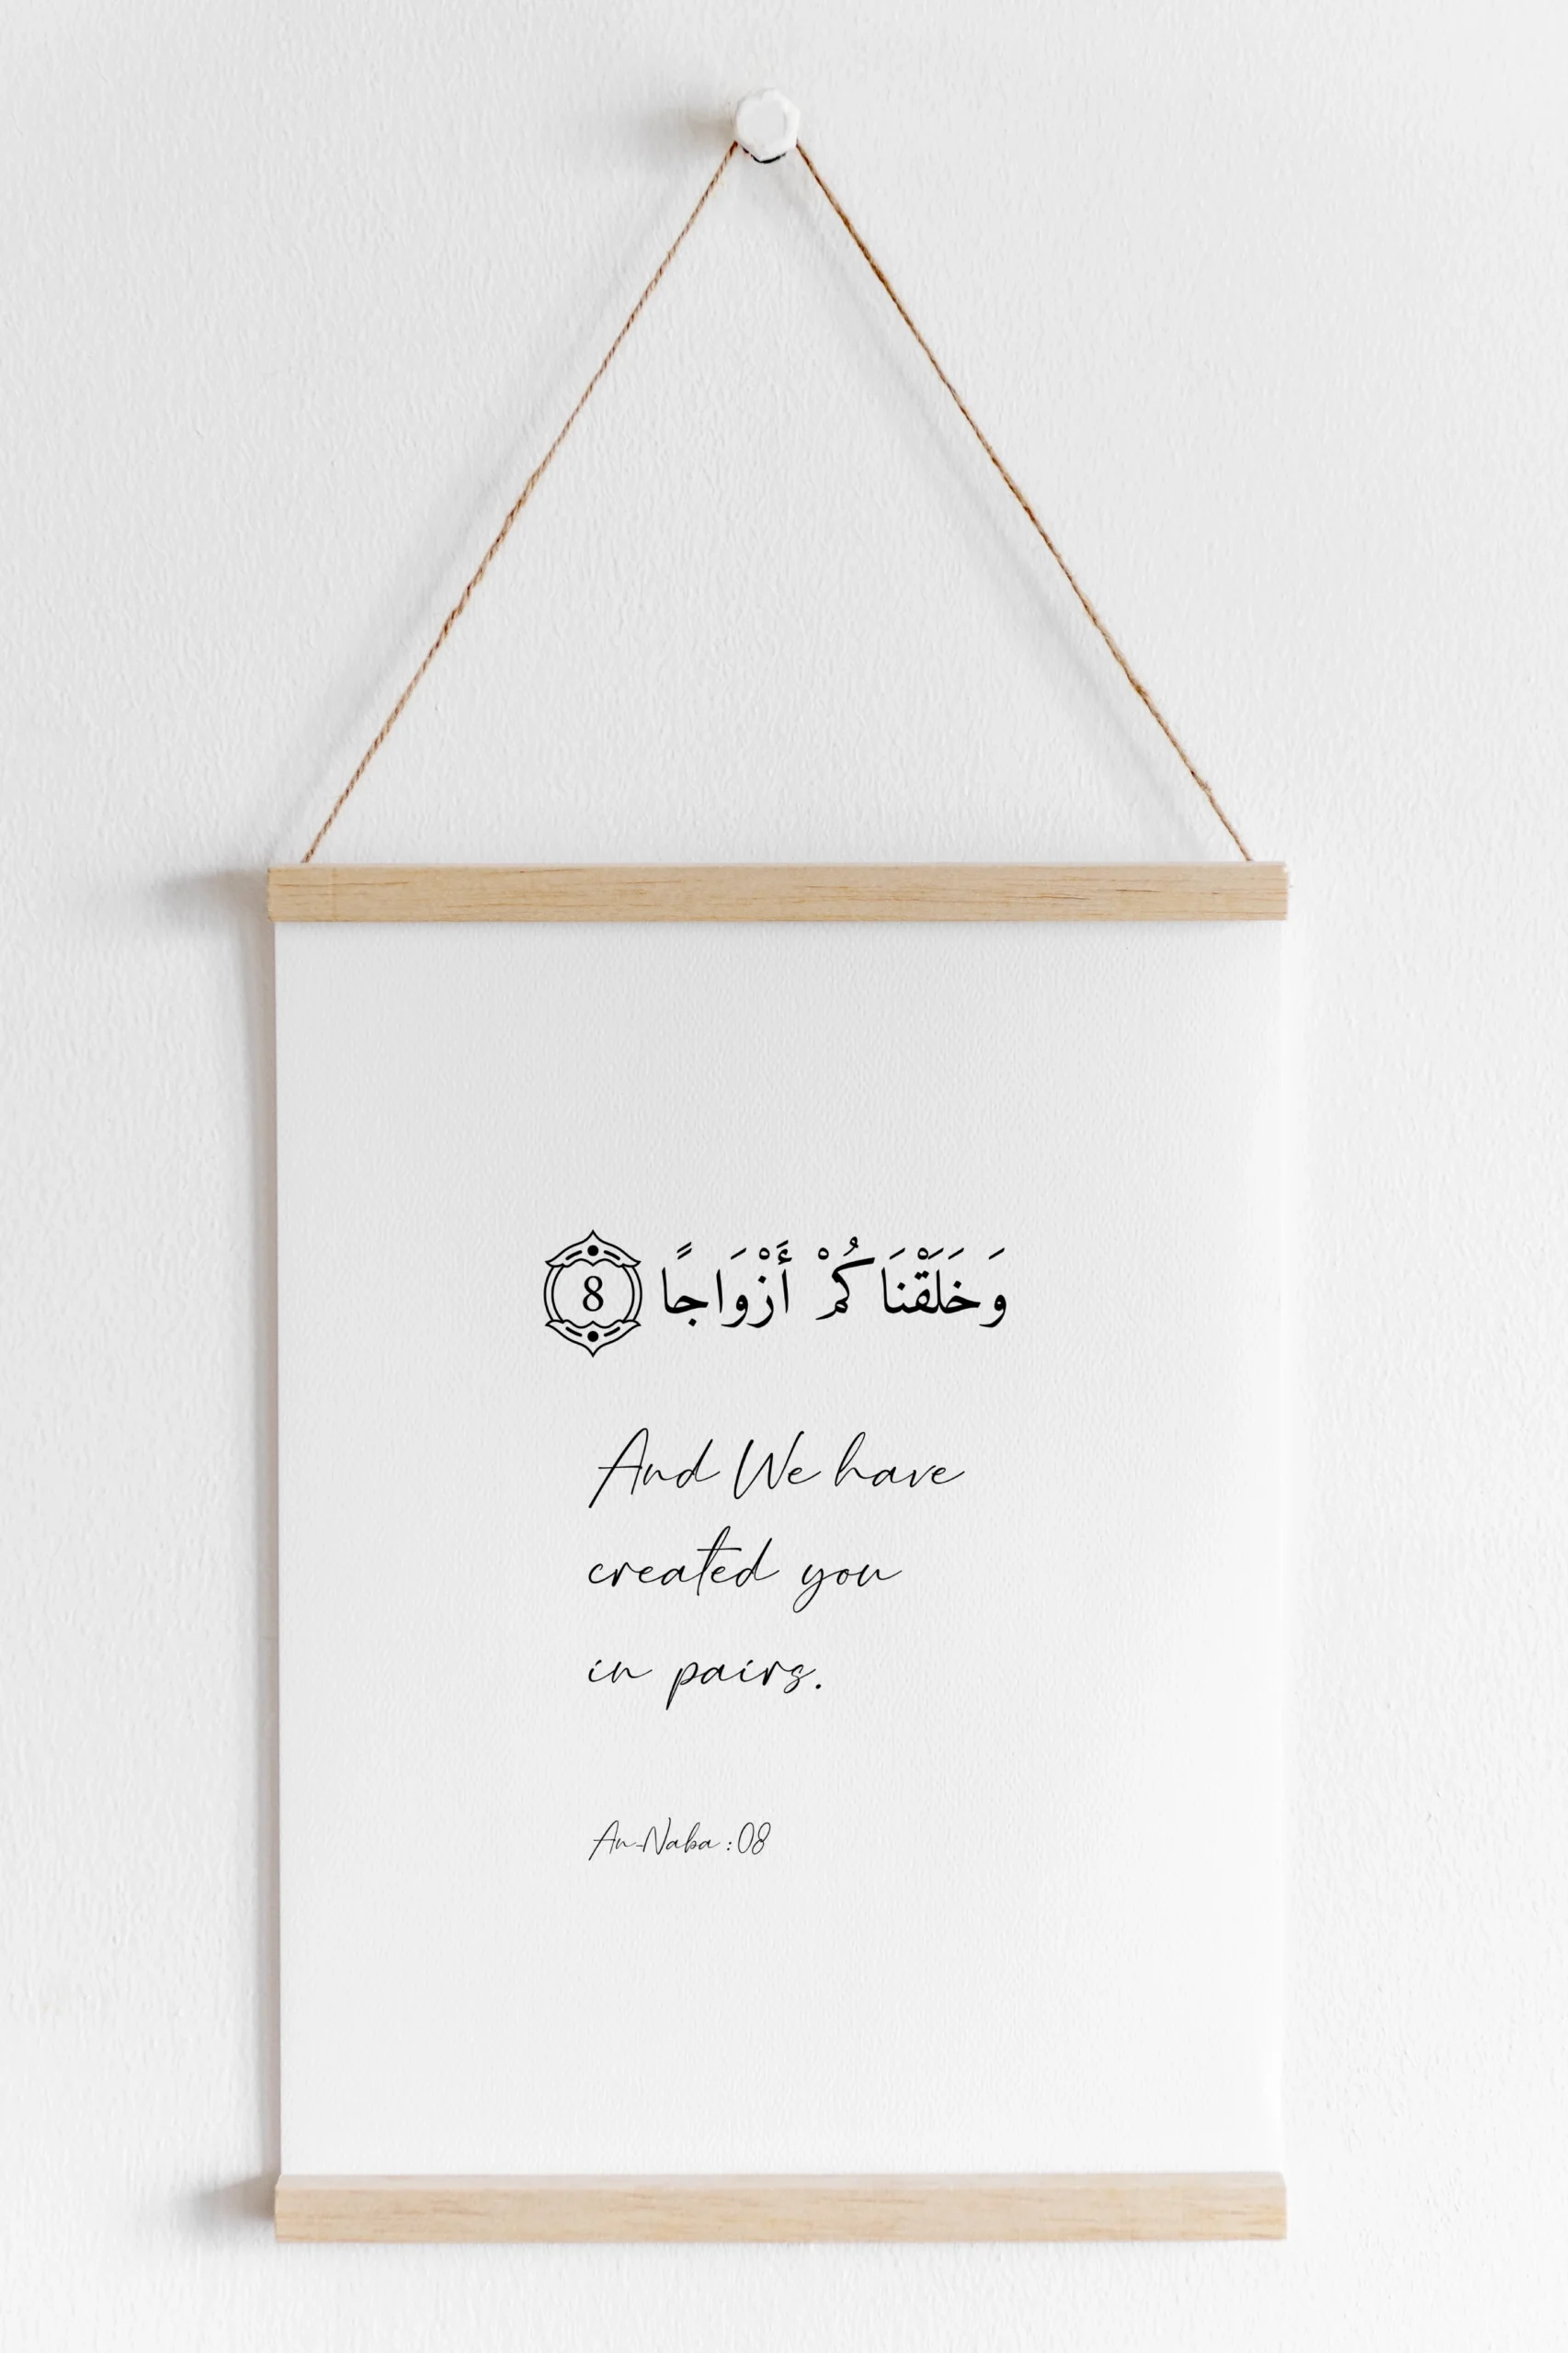 وَخَلَقْنَاكُمْ أَزْوَاجًا 8
And We have
created you
in pairs.
An-Naba :08